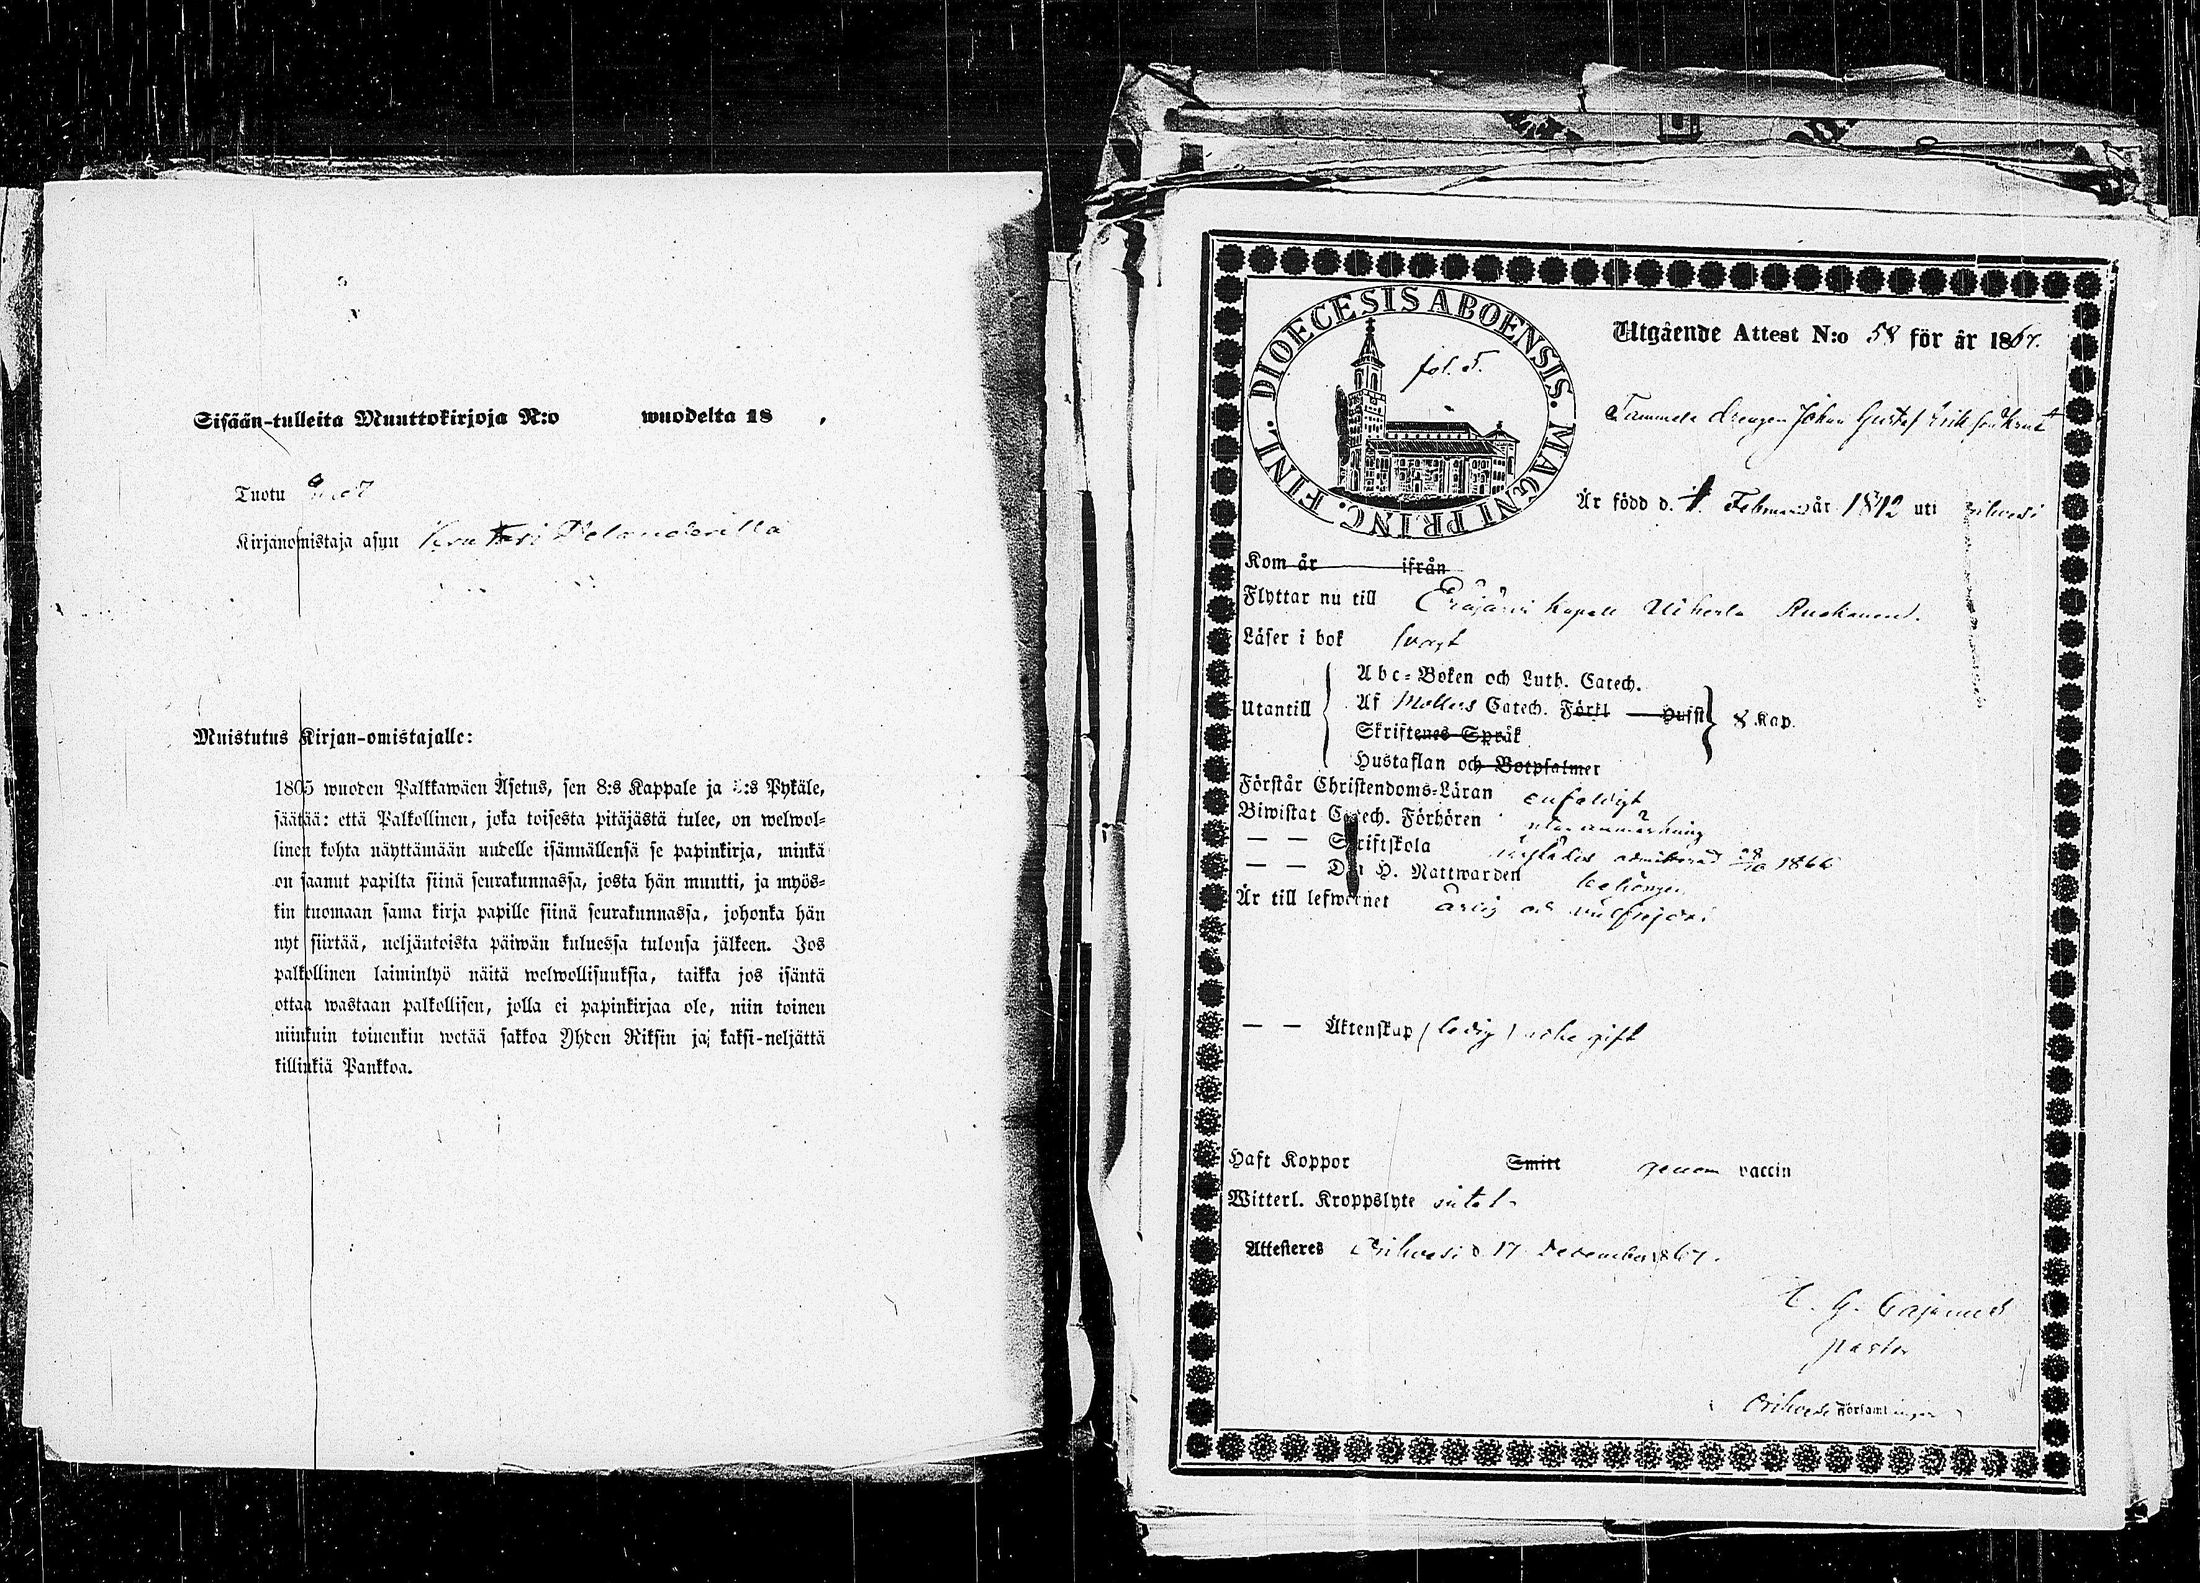 Sisään-tulleita Muuttokirjoja N:o wuodelta 18 .
Tuotu
Kirjanomistaja asuu
Muistutus Kirjan-omistajalle:
1805 wuoden Palkkawäen Asetus, sen 8:s Kappale ja :s Pykäle,
säätää: että Palkollinen, joka toisesta pitäjästä tulee, on welwol-
linen kohta näyttämään uudelle isännällensä se papinkirja, minkä
on saanut papilta siinä seurakunnassa, josta hän muutti, ja myös-
kin tuomaan sama kirja papille siinä seurakunnassa, johonka hän
nyt siirtää, neljäntoista päiwän kuluessa tulonsa jälkeen. Jos
palkollinen laiminlyö näitä welwollisuuksia, taikka jos isäntä
ottaa wastaan palkollisen, jolla ei papinkirjaa ole, niin toinen
niinkuin toinenkin wetää sakkoa Yhden Riksin ja kaksi-neljättä
killinkiä Pankkoa.
DIOECESIS ABOENSIS. MAGNI PRINC. FINL.
fol. 5.
Utgående Attest N:o 58 för år 1867.
drengen Johan Gustaf Eriksson
Är född d. 4 Februari år 1842 uti Orihvesi
Kom år ifrån
Flyttar nu till Eräjärvi Kapell Uiherla
Läser i bok svagt
Utantill
Abc-Boken och Luth. Catech.
Af Möllers Catech. Förkl Hufst 8 Kap.
Skriftenes Språk
Hustaflan och Botpsalmer
Förstår Christendoms-Läran enfaldigt
Biwistat Catech. Förhören utan anmärkning
— — Skriftskola admitterad 1866
— — Den H. Nattwarden behörigen
Är till lefwernet ärlig och
— — Äktenskap (ledig) icke gift
Haft Koppor Smitt genom vaccin
Witterl. Kroppslyte intet
Attesteres Orihvesi d. 17 December 1867.
C. G. Cajanus
pastor
Orihvesi Församlingen